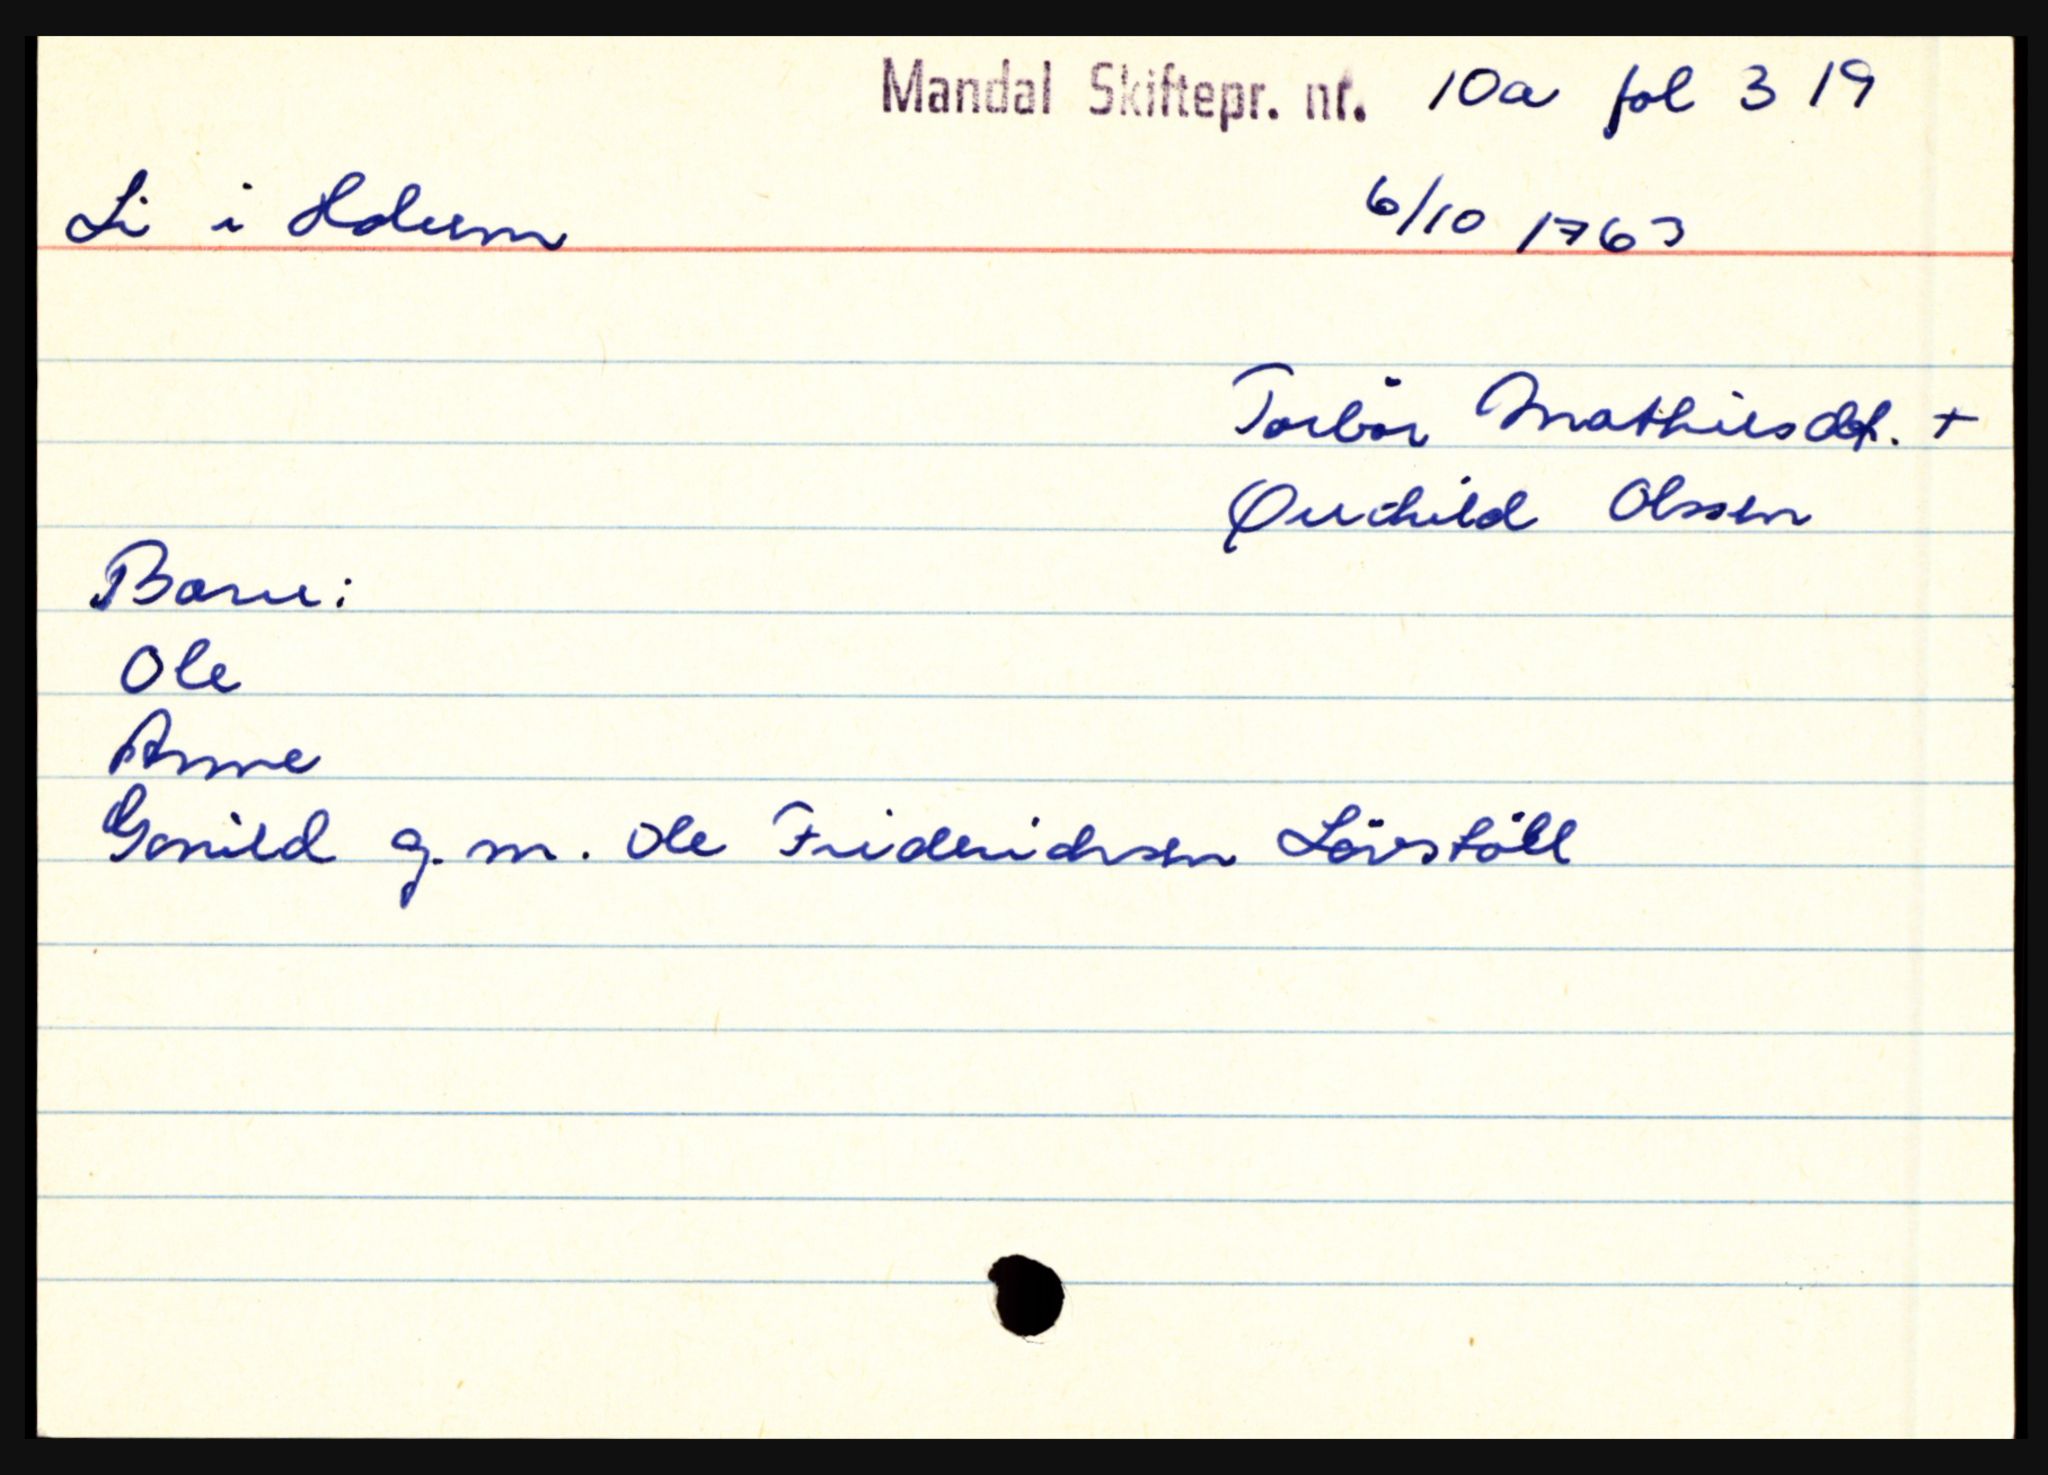 Mandal Skiftepr. nr. 10a fol 319
Li i Holum 6/10 1763
Torbör Mathiesdt. +
Olssen
Barn:
Ole
Anne
Gonild g. m. Ole Friderichsen Lövstöll